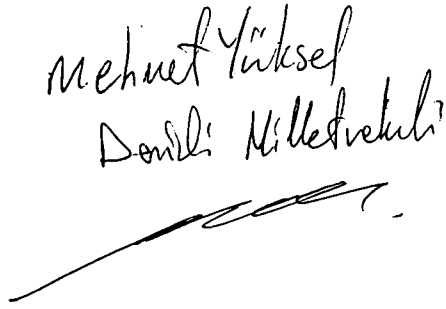 Mehmet Yüksel
Denizli Milletvekili